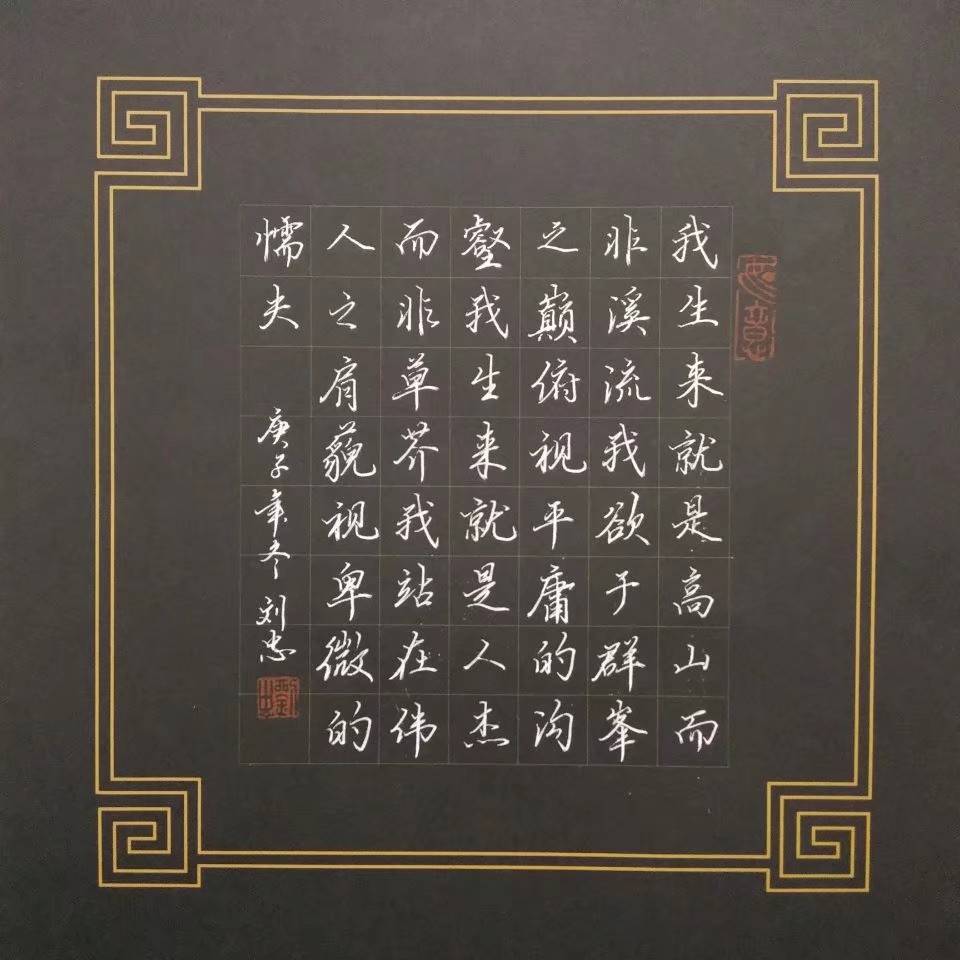 我生来就是高山而
非溪流我欲于群峯
之巅俯视平庸的沟
壑我生来就是人杰
而非草芥我站在伟
人之肩藐视卑微的
懦夫
庚子年冬 刘忠